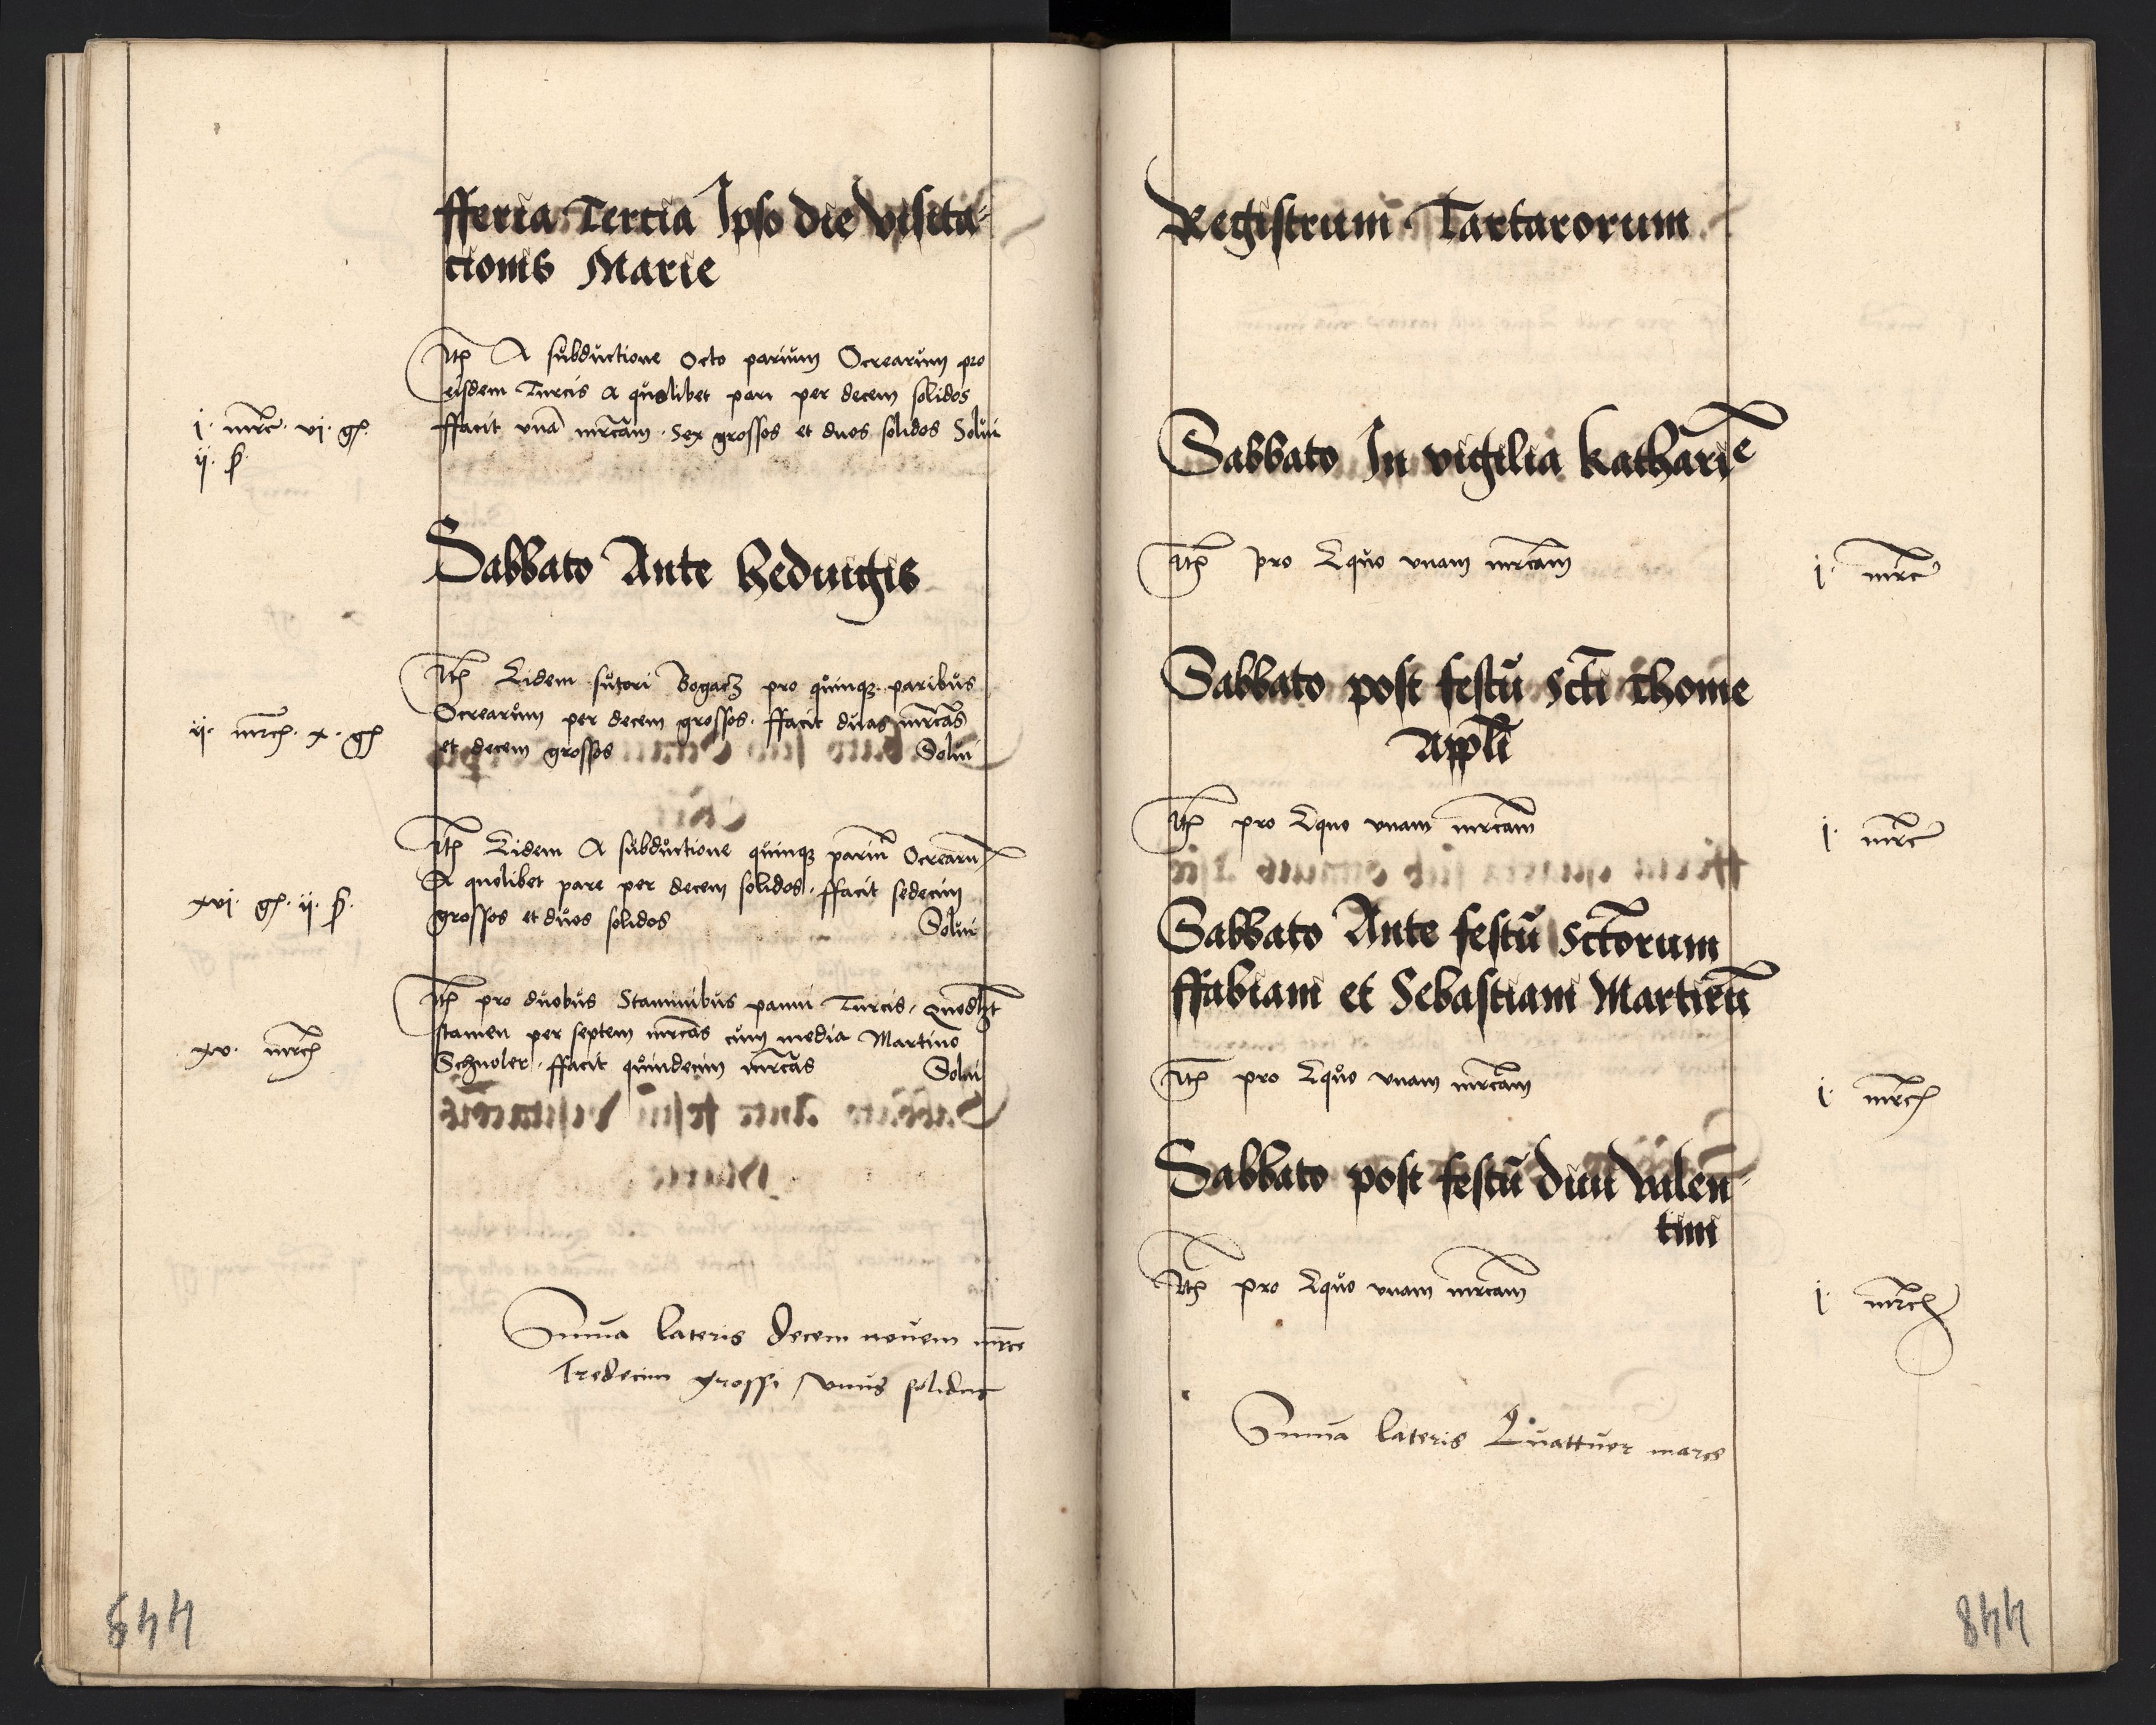 fferia Tertia Ipso die visita=
tionis Marie
Itꝫ A subductione Octo parium Ocrearum pro
eisdem Turcis a quolibet pari per decem solidos
ffacit vnā mrcam. Sex grossos et duos solidos Solui
j. mrc. vj. gꝭ.
ij. ꝭ.
Sabbato Ante heduigis
Itꝫ Eidem sutori Bogacz pro quinqꝫ paribus
Ocrearum per decem grossos. ffacit duas mrcas
et decem grossos Solui
ij. mrcꝭ. x. gꝭ
Itꝫ Eidem A subductione quinqꝫ pariū Ocrearū
A quolibet pare per decem solidos. ffacit sedecim
grossos et duos solidos Solui
xvj. gꝭ. ij. ꝭ.
Itꝫ pro duobus Staminibus panni Turcis, quodlꝫt
stamen per septem mrcas cum media Martino
Schnoler. ffacit quindecim mrcas Solui
xv. mrcꝭ
Sum̄a lateris Decem nouem mrce
Tredecim grossi vnus solidus
844
Registrum Tartarorum
Sabbato In vigilia katharīe
Itꝫ pro Equo vnam mrcam j. mrc
Sabbato post festū Scti Thome
Appli
Itꝫ pro Equo vnam mrcam j. mrc
Sabbato Ante festū Sctorum
ffabiani et Sebastiani Martirū
Itꝫ pro Equo vnam mrcam j. mrcꝭ
Sabbato post festū diui valen=
tini
Itꝫ pro Equo vnam mrcam j. mrcꝭ
Sum̄a lateris Quattuor marce
844